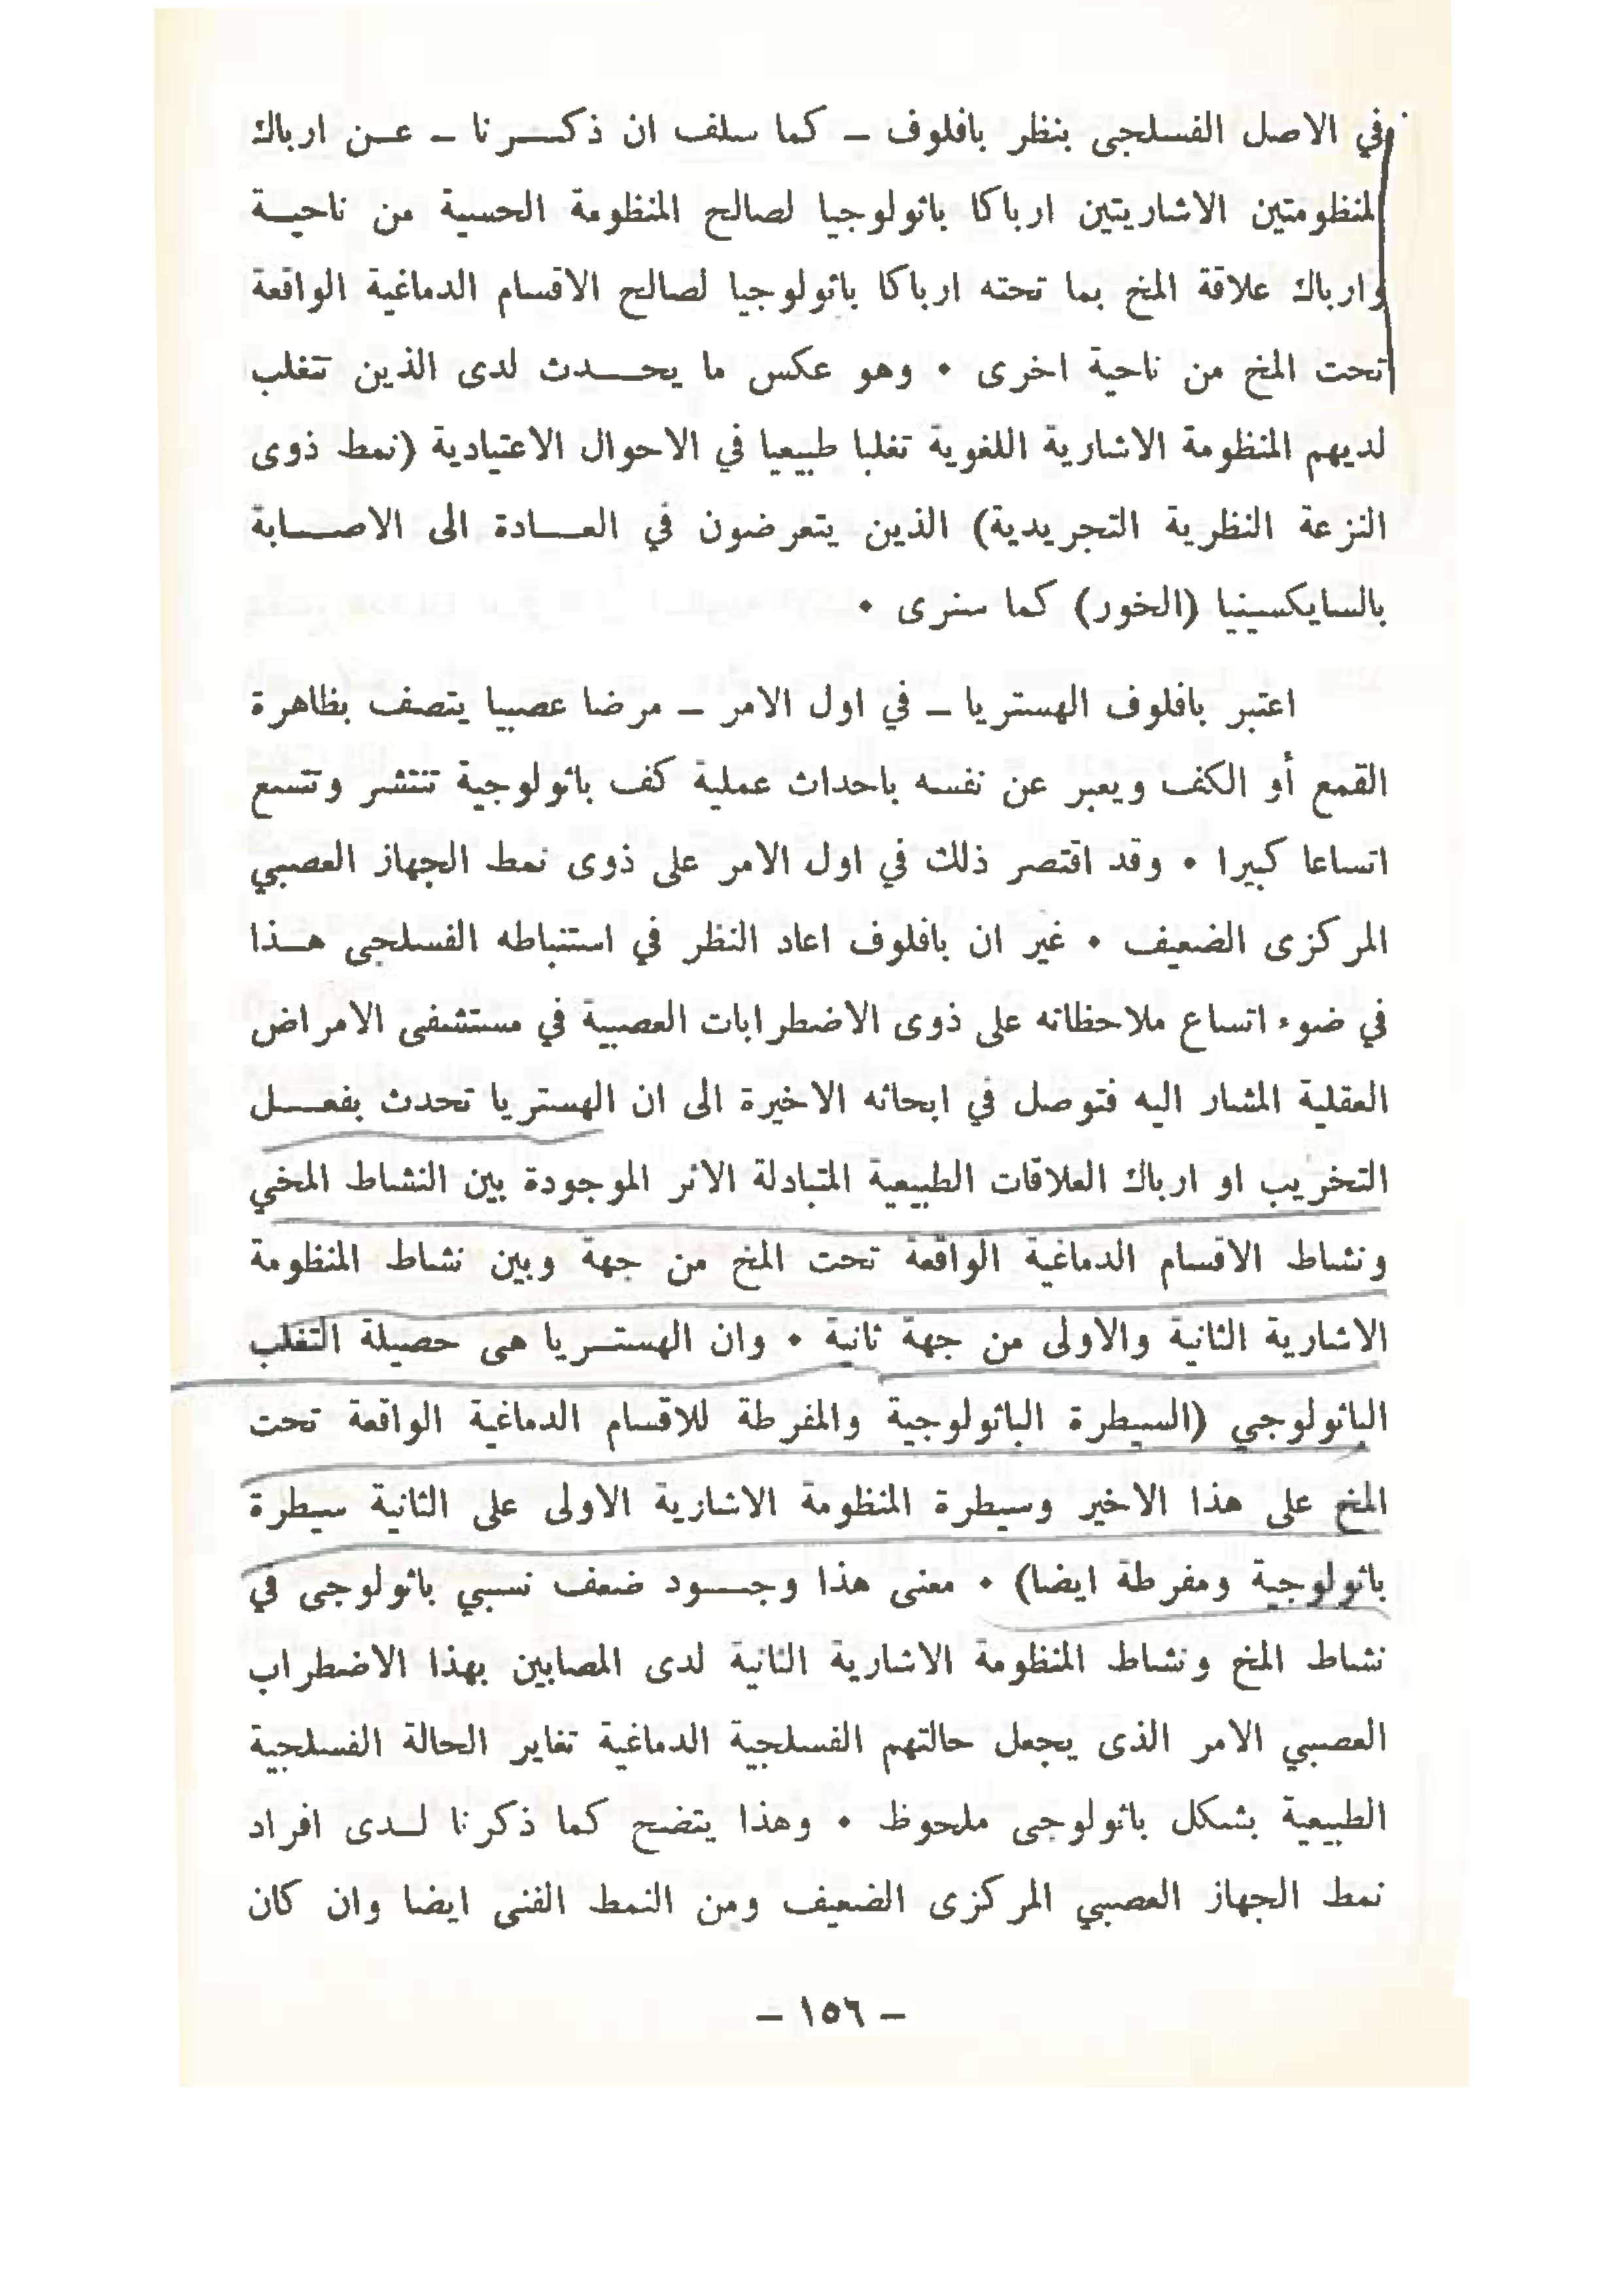 في الاصل الفسلجى بنظر بافلوف ـ كما سلف ان ذكـــرنا ـ عـــن ارباك
المنظومتين الاشاريتين ارباكا باثولوجيا لصالح المنظومة الحسية من ناحيـــة
وارباك علاقة المخ بما تحته ارباكا باثولوجيا لصالح الاقسام الدماغية الواقعة
تحت المخ من ناحية اخرى • وهو عكس ما يحـــدث لدى الذين تتغلب
لديهم المنظومة الاشارية اللغوية تغلبا طبيعيا في الاحوال الاعتيادية (نمط ذوى
النزعة النظرية التجريدية) الذين يتعرضون في العـــادة الى الاصـــابة
بالسايكسينيا (الخور) كما سنرى •
اعتبر بافلوف الهستريا ـ في اول الامر ـ مرضا عصبيا يتصف بظاهرة
القمع أو الكف ويعبر عن نفسه باحداث عملية كف باثولوجية تنتشر وتتسع
اتساعا كبيرا • وقد اقتصر ذلك في اول الامر على ذوى نمط الجهاز العصبي
المركزى الضعيف • غير ان بافلوف اعاد النظر في استنباطه الفسلجى هـــذا
في ضوء اتساع ملاحظاته على ذوى الاضطرابات العصبية في مستشفى الامراض
العقلية المشار اليه فتوصل في ابحاثه الاخيرة الى ان الهستريا تحدث بفعـــل
التخريب او ارباك العلاقات الطبيعية المتبادلة الاثر الموجودة بين النشاط المخي
ونشاط الاقسام الدماغية الواقعة تحت المخ من جهة وبين نشاط المنظومة
الاشارية الثانية والاولى من جهة ثانية • وان الهستـــريا هى حصيلة التغلب
الباثولوجي (السيطرة الباثولوجية والمفرطة للاقسام الدماغية الواقعة تحت
المخ على هذا الاخير وسيطرة المنظومة الاشارية الاولى على الثانية سيطرة
باثولوجية ومفرطة ايضا) • معنى هذا وجـــود ضعف نسبي باثولوجى في
نشاط المخ ونشاط المنظومة الاشارية الثانية لدى المصابين بهذا الاضطراب
العصبي الامر الذى يجعل حالتهم الفسلجية الدماغية تغاير الحالة الفسلجية
الطبيعية بشكل باثولوجى ملحوظ • وهذا يتضح كما ذكرنا لـــدى افراد
نمط الجهاز العصبي المركزى الضعيف ومن النمط الفنى ايضا وان كان
ـ ١٥٦ ـ